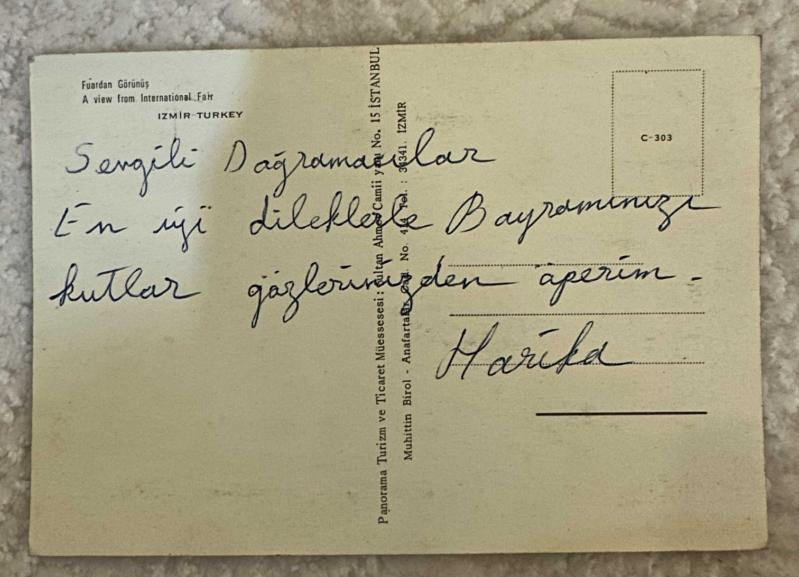 Fuardan Görünüş
A view from International Fair
IZMİR-TURKEY
C-303
Sevgili Doğramacılar
En iyi dileklerle Bayramınızı
kutlar gözlerinizden öperim.
Harika
Panorama Turizm ve Ticaret Müessesesi: Sultan Ahmet Camii yanı No. 15 İSTANBUL
Muhittin Birol - Anafartalar Cad. No. Tel.: 36341. IZMİR